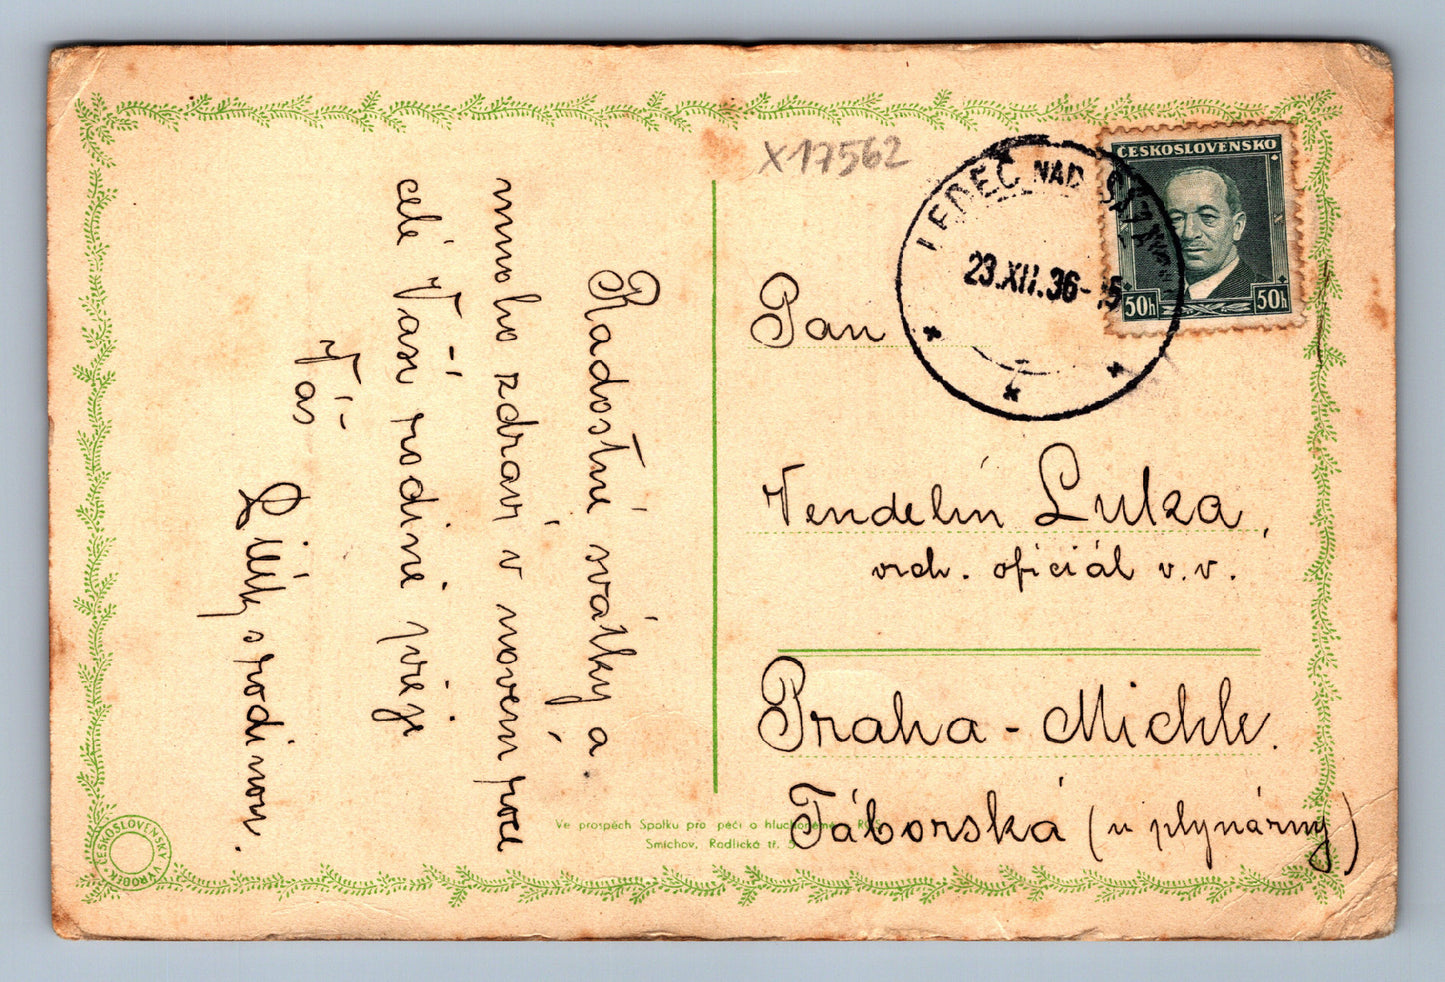 X17562
ČESKOSLOVENSKO
50h 50h
LEDEČ NAD SÁZAVOU
23.XII.36-15
Radostné svátky a
mnoho zdraví v novém roce
celé Vaší rodině přeje
Váš
s rodinou.
Pan
Vendelín Lukza,
vrch. oficiál v.v.
Praha - Michle.
Táborská (u plynárny)
Ve prospěch Spolku pro péči o hluchoněmé
Smíchov, Radlická tř. 5
ČESKOSLOVENSKÝ VÝROBEK